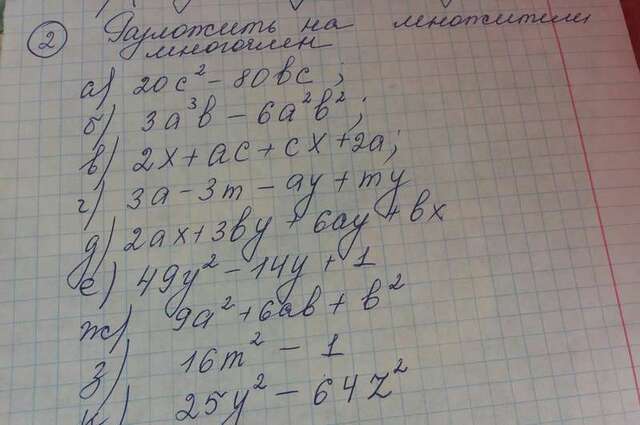 2 Разложить на множители
многочлен
а) 20c² - 80bc ;
б) 3a³b - 6a²b² ;
в) 2x + ac + cx + 2a ;
г) 3a - 3m - ay + my
д) 2ax + 3by + 6ay + bx
е) 49y² - 14y + 1
ж) 9a² + 6ab + b²
з) 16m² - 1
и) 25y² - 64z²